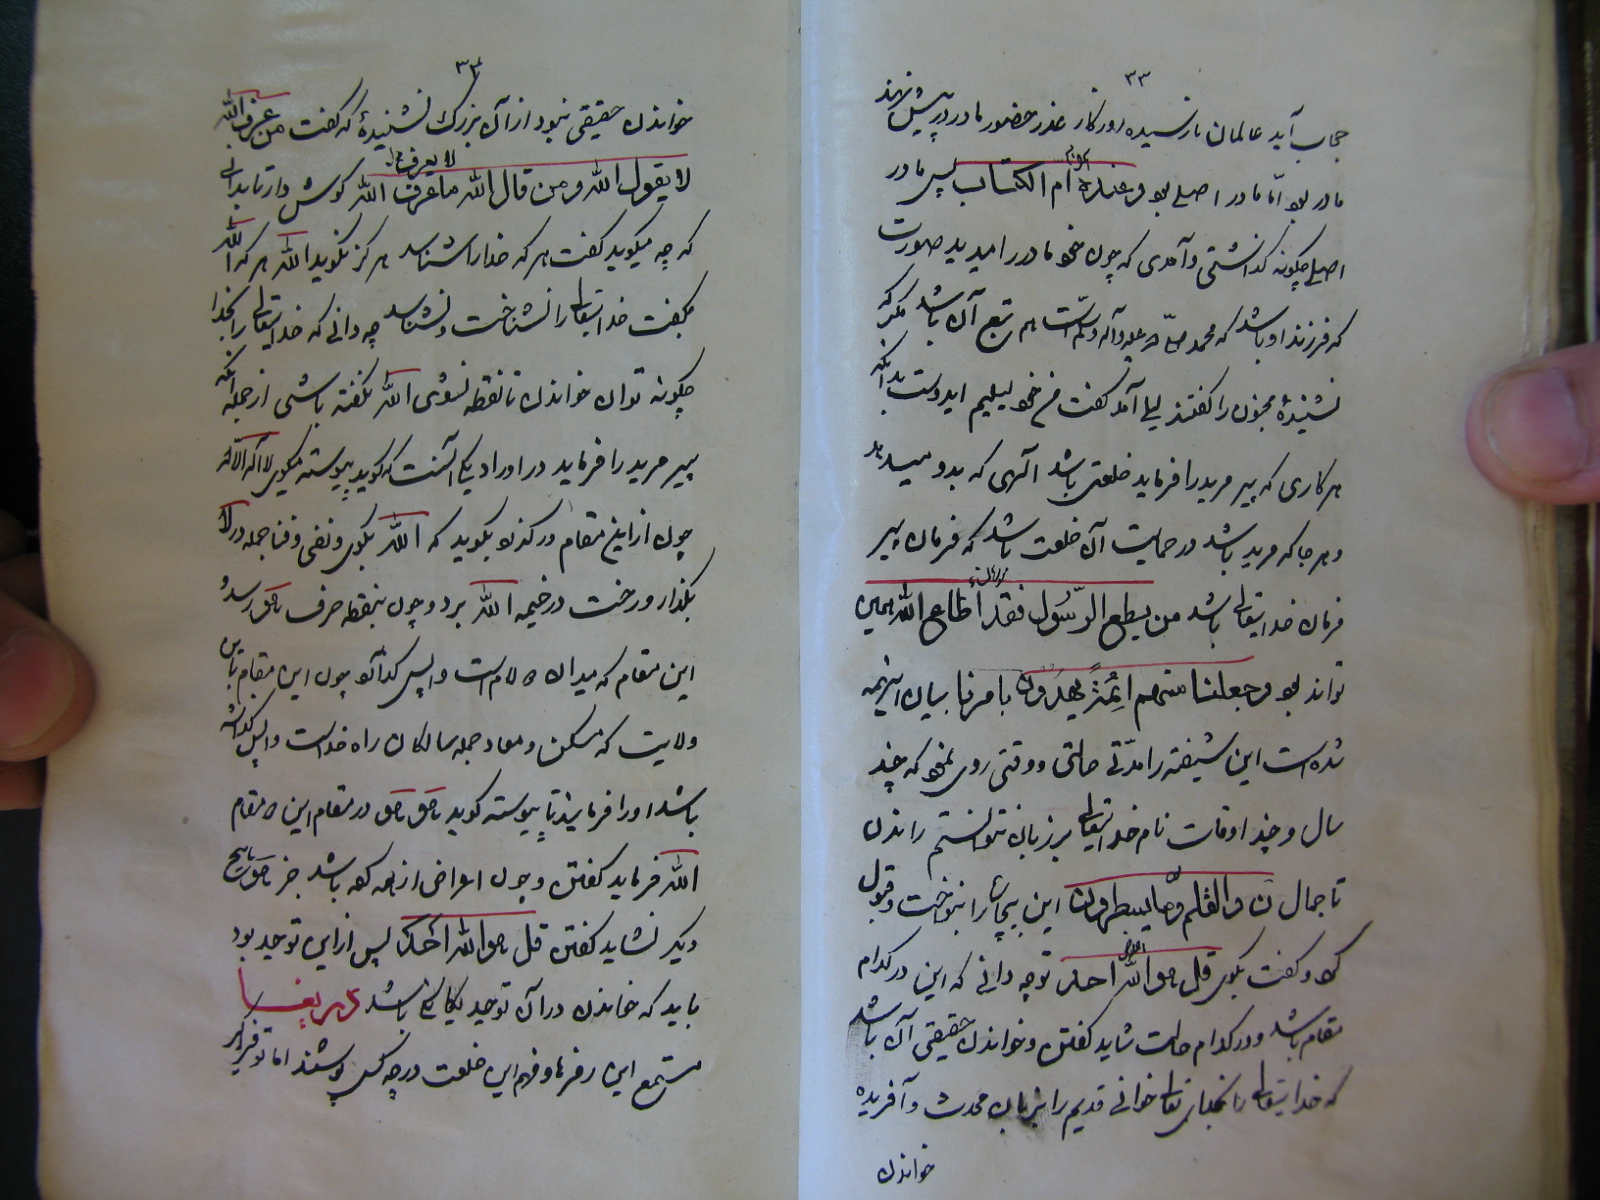 ۳۳
حجاب آید عالمان نارسیده روزگار عذر حضور مادر در پیش نهند
مادر بود امّا مادر اصلی بود و عنده ام الکتاب پس مادر
اصلی چگونه گذاشتی و آمدی که چون خود مادر را میدید صورت
که فرزند او باشد که محمد صلی الله علیه و آله و سلم است هم تبع آن باشد مگر که
نشنیدۀ مجنون را گفتند لیلی آمد گفت من خود لیلیم ایدوست بدانکه
هر کاری که پیر مرید را فرماید خلعتی باشد الهی که بدو میدهد
و هر جا که مرید باشد در حمایت آن خلعت باشد که فرمان پیر
فرمان خدایتعالی باشد من یطع الرّسول فقد اطاع الله همین
تواند بود و جعلنا منهم ائمة یهدون بامرنا بیان اینهمه
شده است این شیفته را مدّتی حالتی و وقتی روی نمود که چند
سال و چند اوقات نام خدایتعالی بر زبان نتوانستم راندن
تا جمال ن و القلم و ما یسطرون این بیچاره را بنواخت و قبول
کرد و گفت بگوی قل هو الله احد تو چه دانی که این در کدام
مقام باشد و در کدام حالت شاید گفتن و خواندن حقیقی آن باشد
که خدایتعالی را بخدای تعالی خوانی قدیم را بزبان محدث و آفریده
خواندن
۳۴
خواندن حقیقی نبود از آن بزرگ نشنیدۀ که گفت من عرف الله
لا یقول الله و من قال الله ما عرف الله گوش دار تا بدانی
که چه میگوید گفت هر که خدا را شناسد هرگز نگوید الله هر که الله
بگفت خدایتعالی را نشناخت و نشناسد چه دانی که خدایتعالی را بخدا
چگونه توان خواندن تا نقطه نشوی الله نگفته باشی از جمله آنکه
پیر مرید را فرماید در اوراد یکی آنست که گوید پیوسته میگوی لا اله الا الله
چون از این مقام درگذرد بگوید که الله بگوی و نفی و فنا جمله در لا
بگذار و رخت در خیمه الله برد و چون بنقطه حرف هو رسد و
این مقام که میدان ه لام است واپس گذارد چون این مقام تابش
ولایت که مسکن و معاد جمله سالکان راه خداست واپس گذاشته
باشد او را فرمایند تا پیوسته گوید هو هو در مقام این ه مقام
الله فرماید گفتن و چون اعراض از همه کرده باشد جز هو هیچ
دیگر نشاید گفتن قل هو الله احد پس از این توحید بود
باید که خواندن در آن توحید یکی باشد
مستمع این رفرما و فهم این خلعت در چه کس پوشند اما